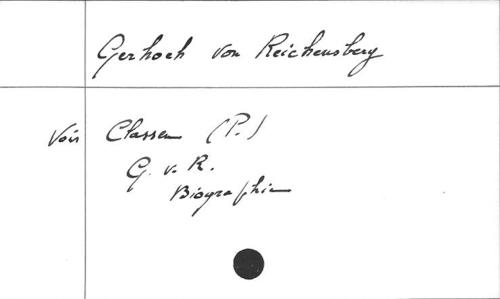 Gerhoch von Reichensberg
Voir Classen (P.)
G. v. R.
Biographie